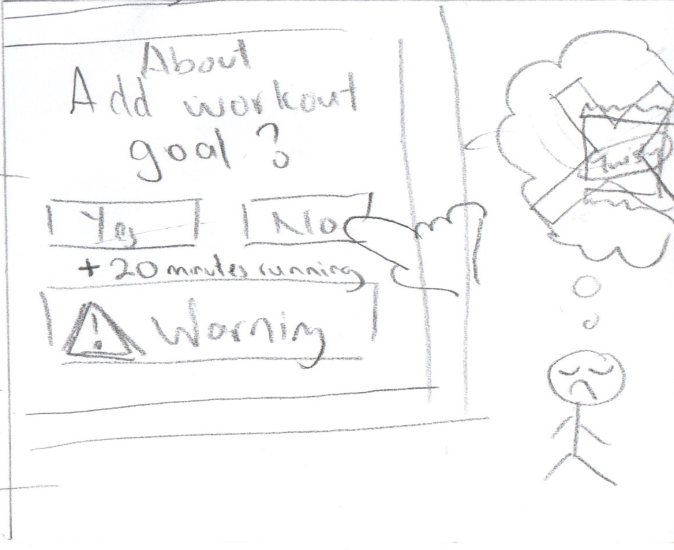 About
Add workout
goal?
Yes No
+ 20 minutes running
! Warning